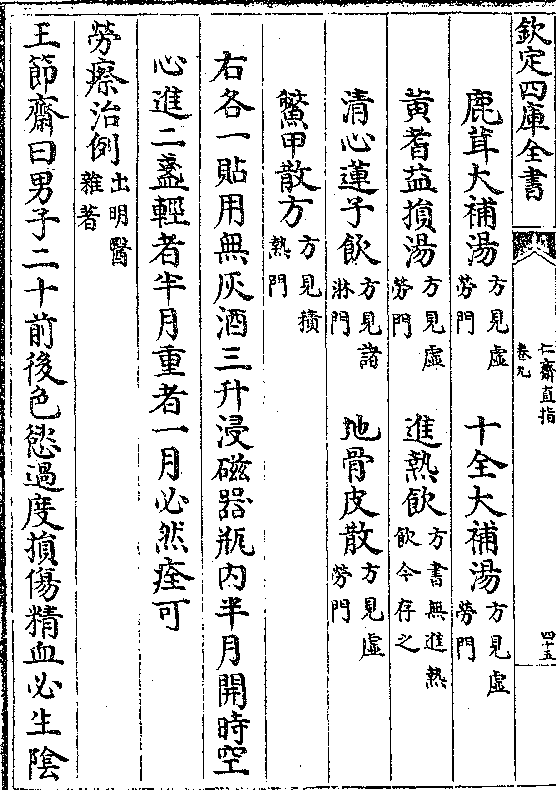 欽定四庫全書
仁齋直指
卷九
四十五
鹿茸大補湯方見虛勞門　十全大補湯方見虛勞門
黃耆益損湯方見虛勞門　進熱飲方書無進熱飲今存之
清心蓮子飲方見諸淋門　地骨皮散方見虛勞門
鱉甲散方方見積熱門
右各一貼用無灰酒三升浸磁器瓶內半月開時空
心進二盞輕者半月重者一月必然痊可
勞瘵治例出明醫雜著
王節齋曰男子二十前後色慾過度損傷精血必生陰